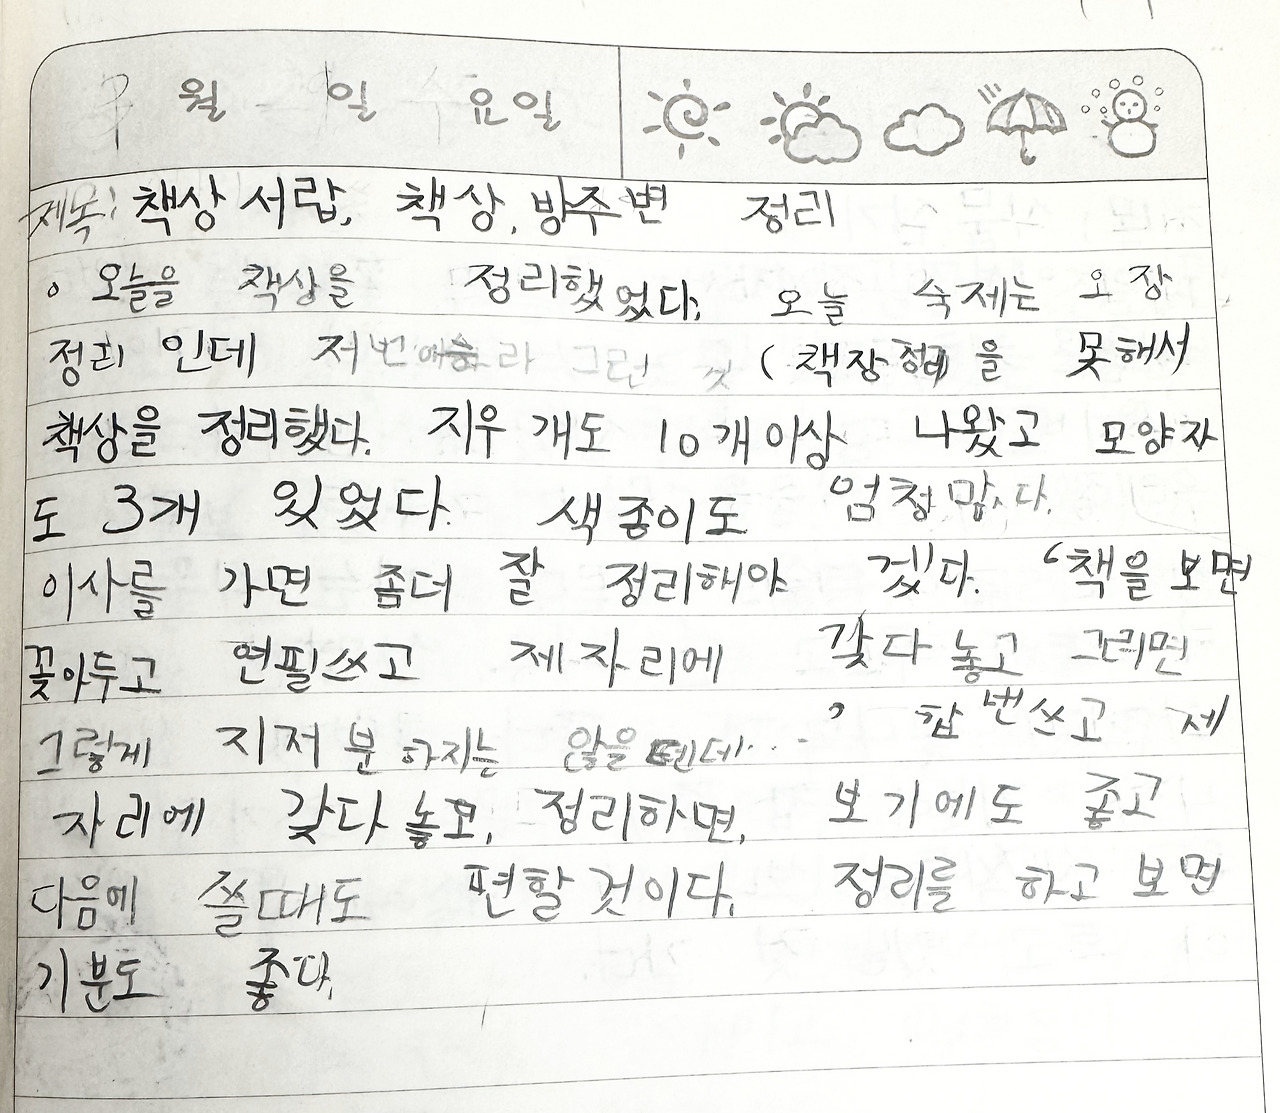 월 일 요일
제목: 책상 서랍, 책상, 방주변 정리
오늘을 책상을 정리했었다. 오늘 숙제는 오장
정리 인데 저번 라 그런 (책장정리)을 못해서
책상을 정리했다. 지우개도 10개이상 나왔고 모양자
도 3개 있었다. 색종이도 엄청많다.
이사를 가면 좀더 잘 정리해야 겠다. ‘책을 보면
꽂아두고 연필쓰고 제자리에 갖다놓고 그러면
그렇게 지저분하지는 않을텐데... ’ 한번쓰고 제
자리에 갖다놓고, 정리하면, 보기에도 좋고
다음에 쓸때도 편할것이다. 정리를 하고보면
기분도 좋다.